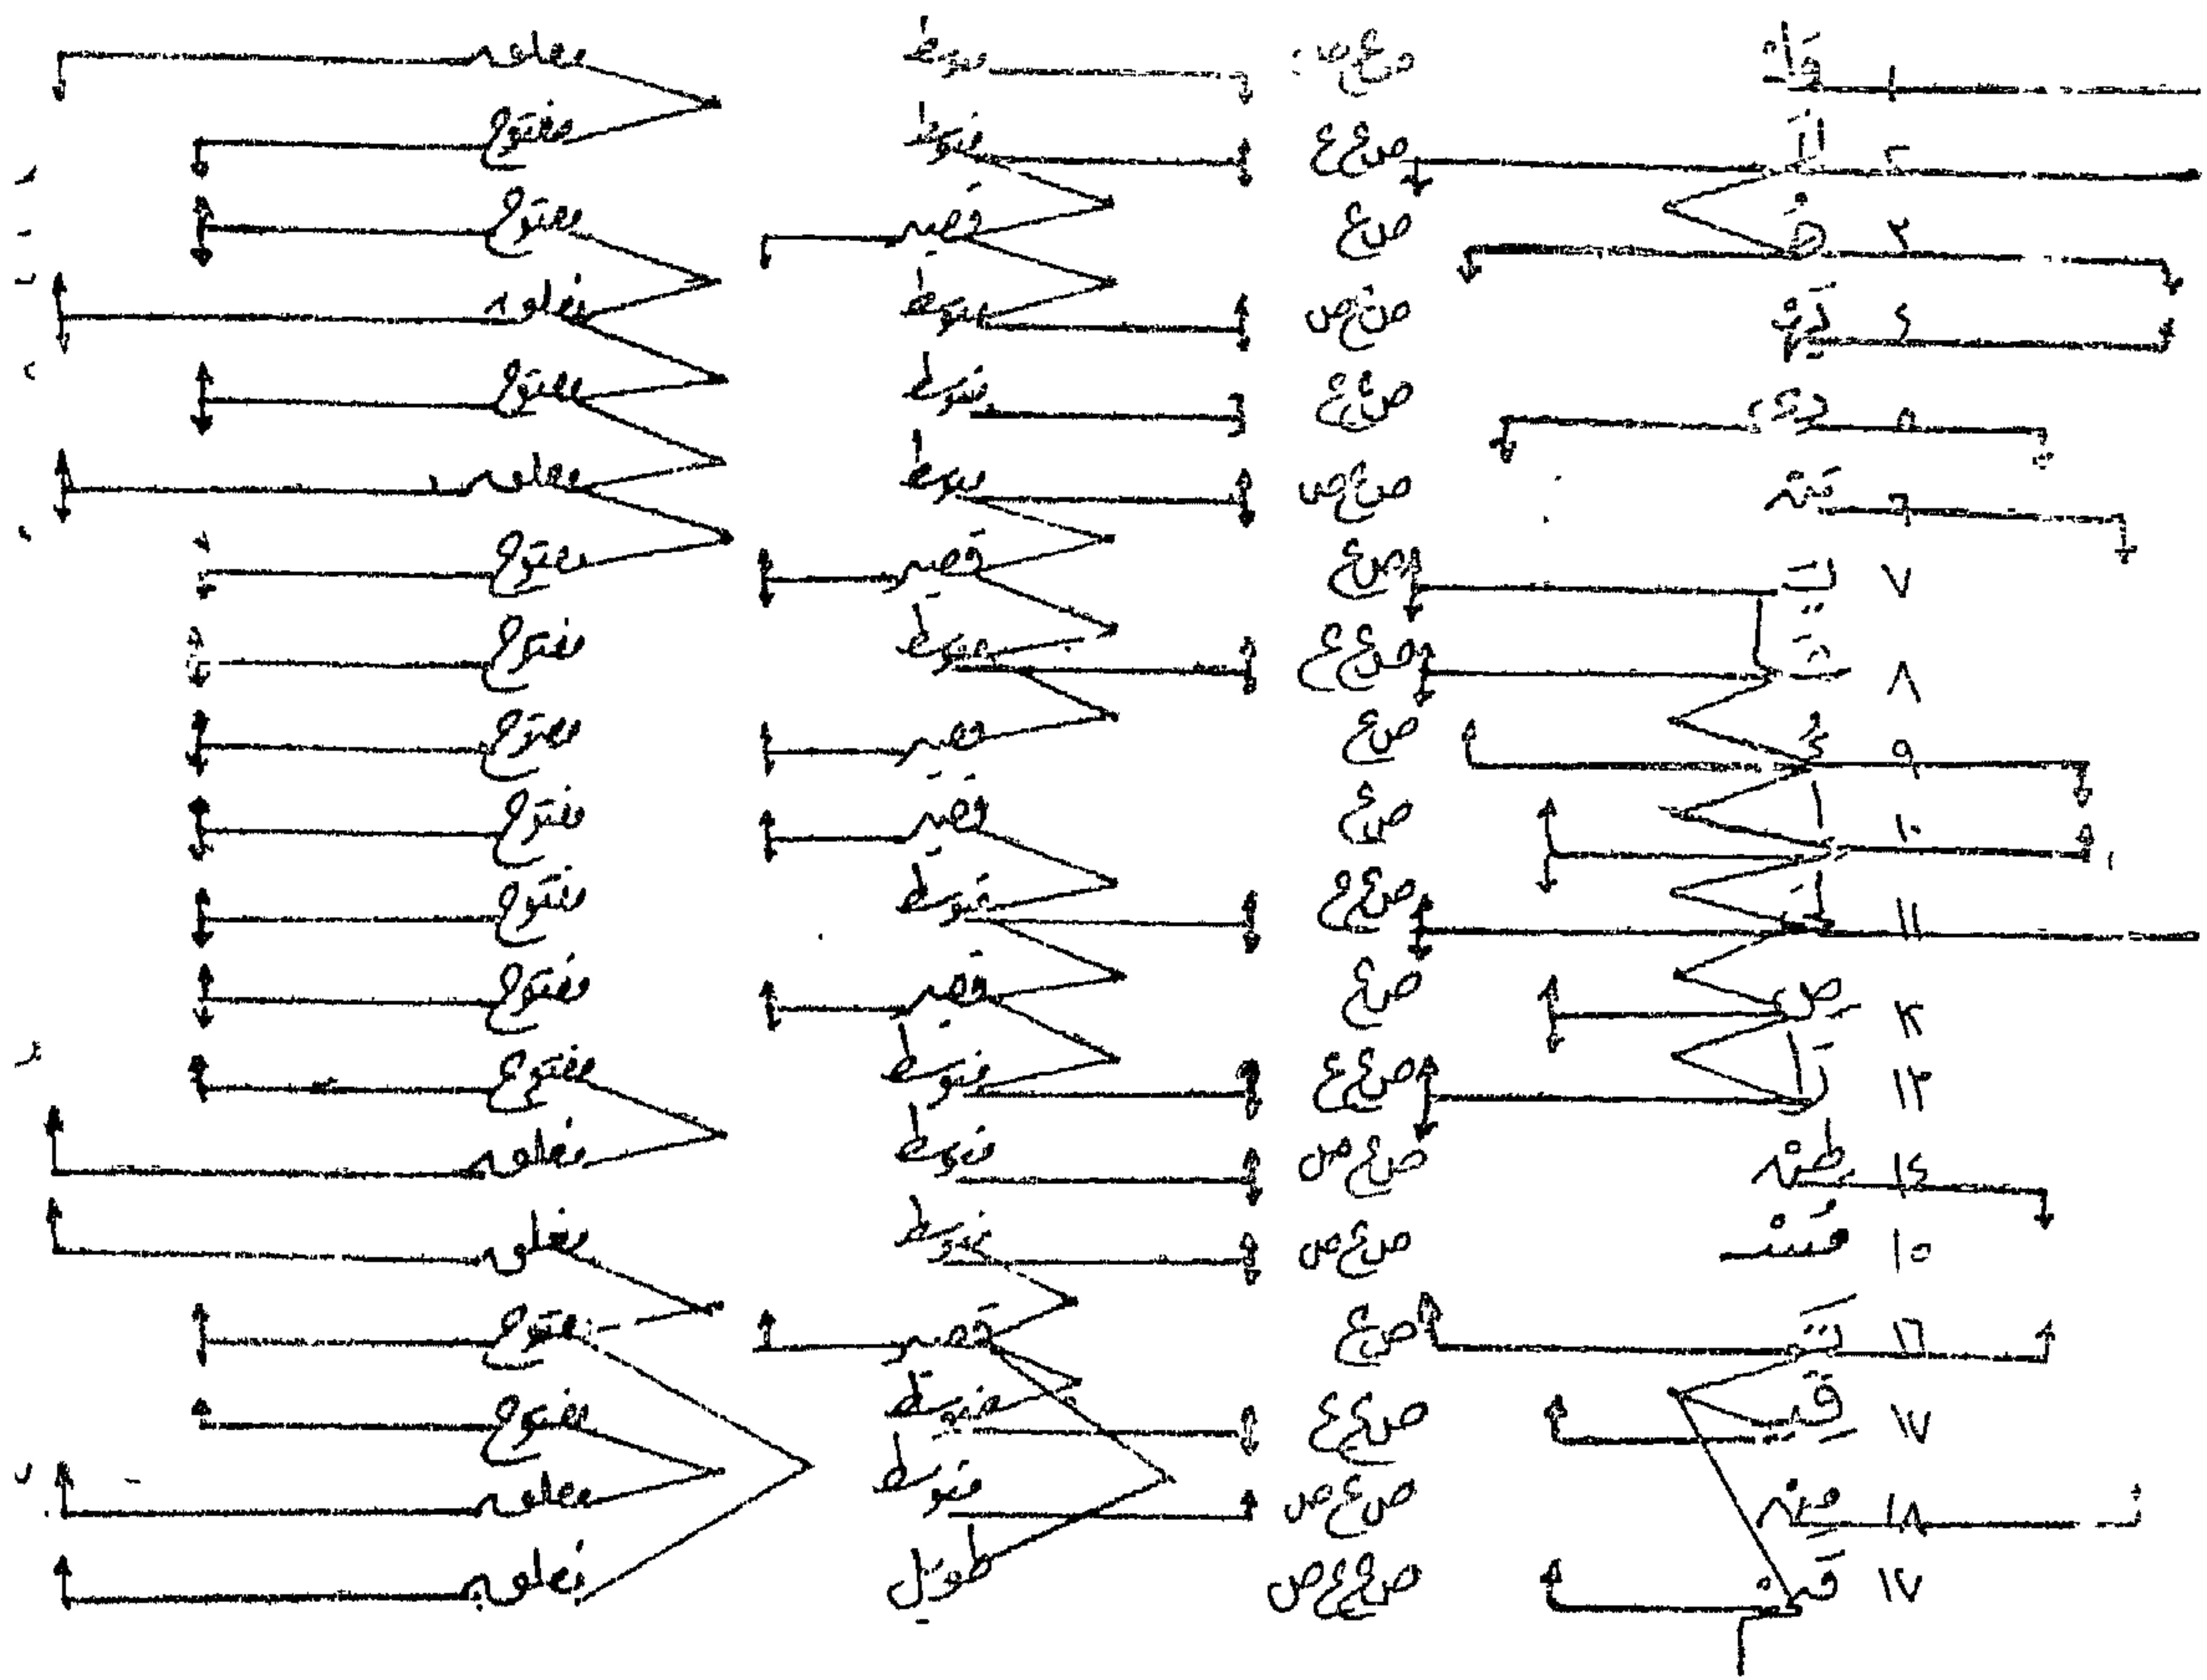 ١ وَإِنْ ص ع ص متوسط مغلق
٢ لَا ص ع ع متوسط مفتوح
٣ ص ع قصير مفتوح
٤ ص ع ص متوسط مغلق
٥ ص ع ع متوسط مفتوح
٦ ص ع ص متوسط مغلق
٧ ص ع قصير مفتوح
٨ ص ع ع متوسط مفتوح
٩ ص ع قصير مفتوح
١٠ ص ع قصير مفتوح
١١ ص ع ع متوسط مفتوح
١٢ صِ ص ع قصير مفتوح
١٣ رَا ص ع ع متوسط مفتوح
١٤ طِنْ ص ع ص متوسط مغلق
١٥ مُسْـ ص ع ص متوسط مغلق
١٦ تَـ ص ع قصير مفتوح
١٧ قِيـ ص ع ع متوسط مفتوح
١٨ مِنْ ص ع ص متوسط مغلق
١٧ ص ع ع ص طويل مغلق